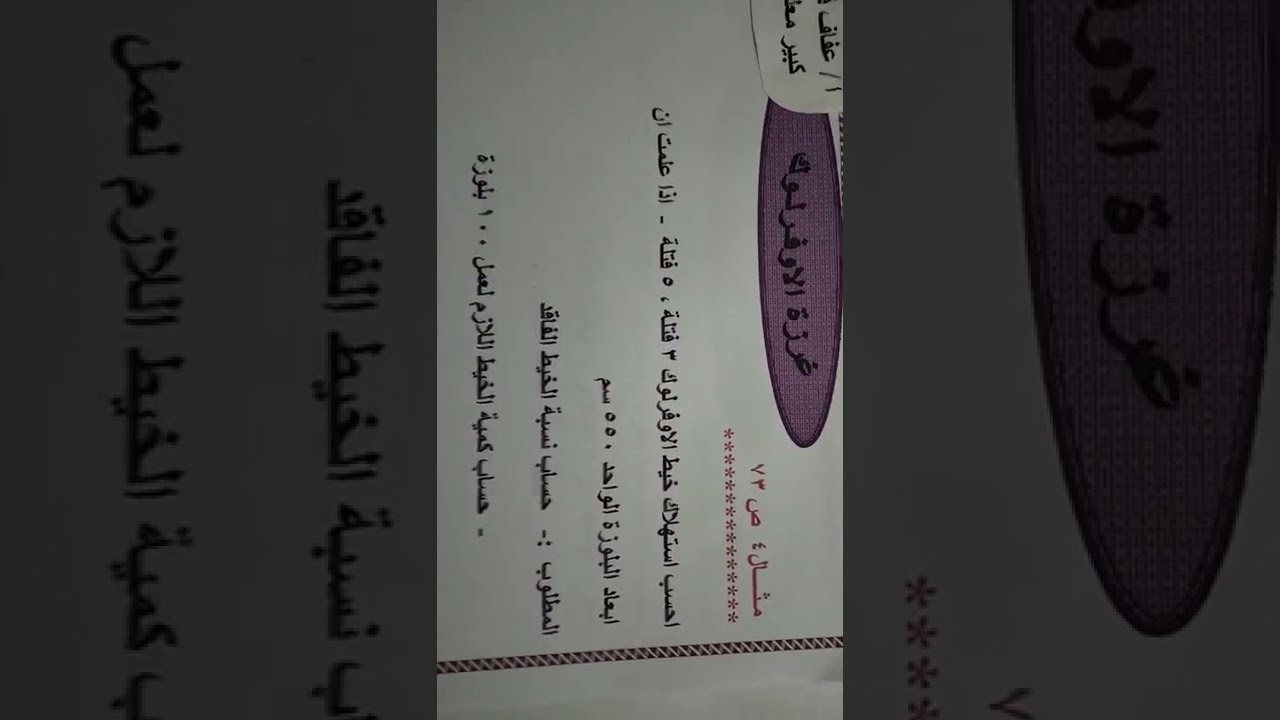 أ/ عفاف
كبير
غرزة الاوفرلوك
مثال ٤ ص ٧٣
************
احسب استهلاك خيط الاوفرلوك ٣ فتلة ، ٥ فتلة - اذا علمت ان
ابعاد البلوزة الواحد ٥٥٠ سم
المطلوب :- حساب نسبة الخيط الفاقد
- حساب كمية الخيط اللازم لعمل ١٠٠ بلوزة